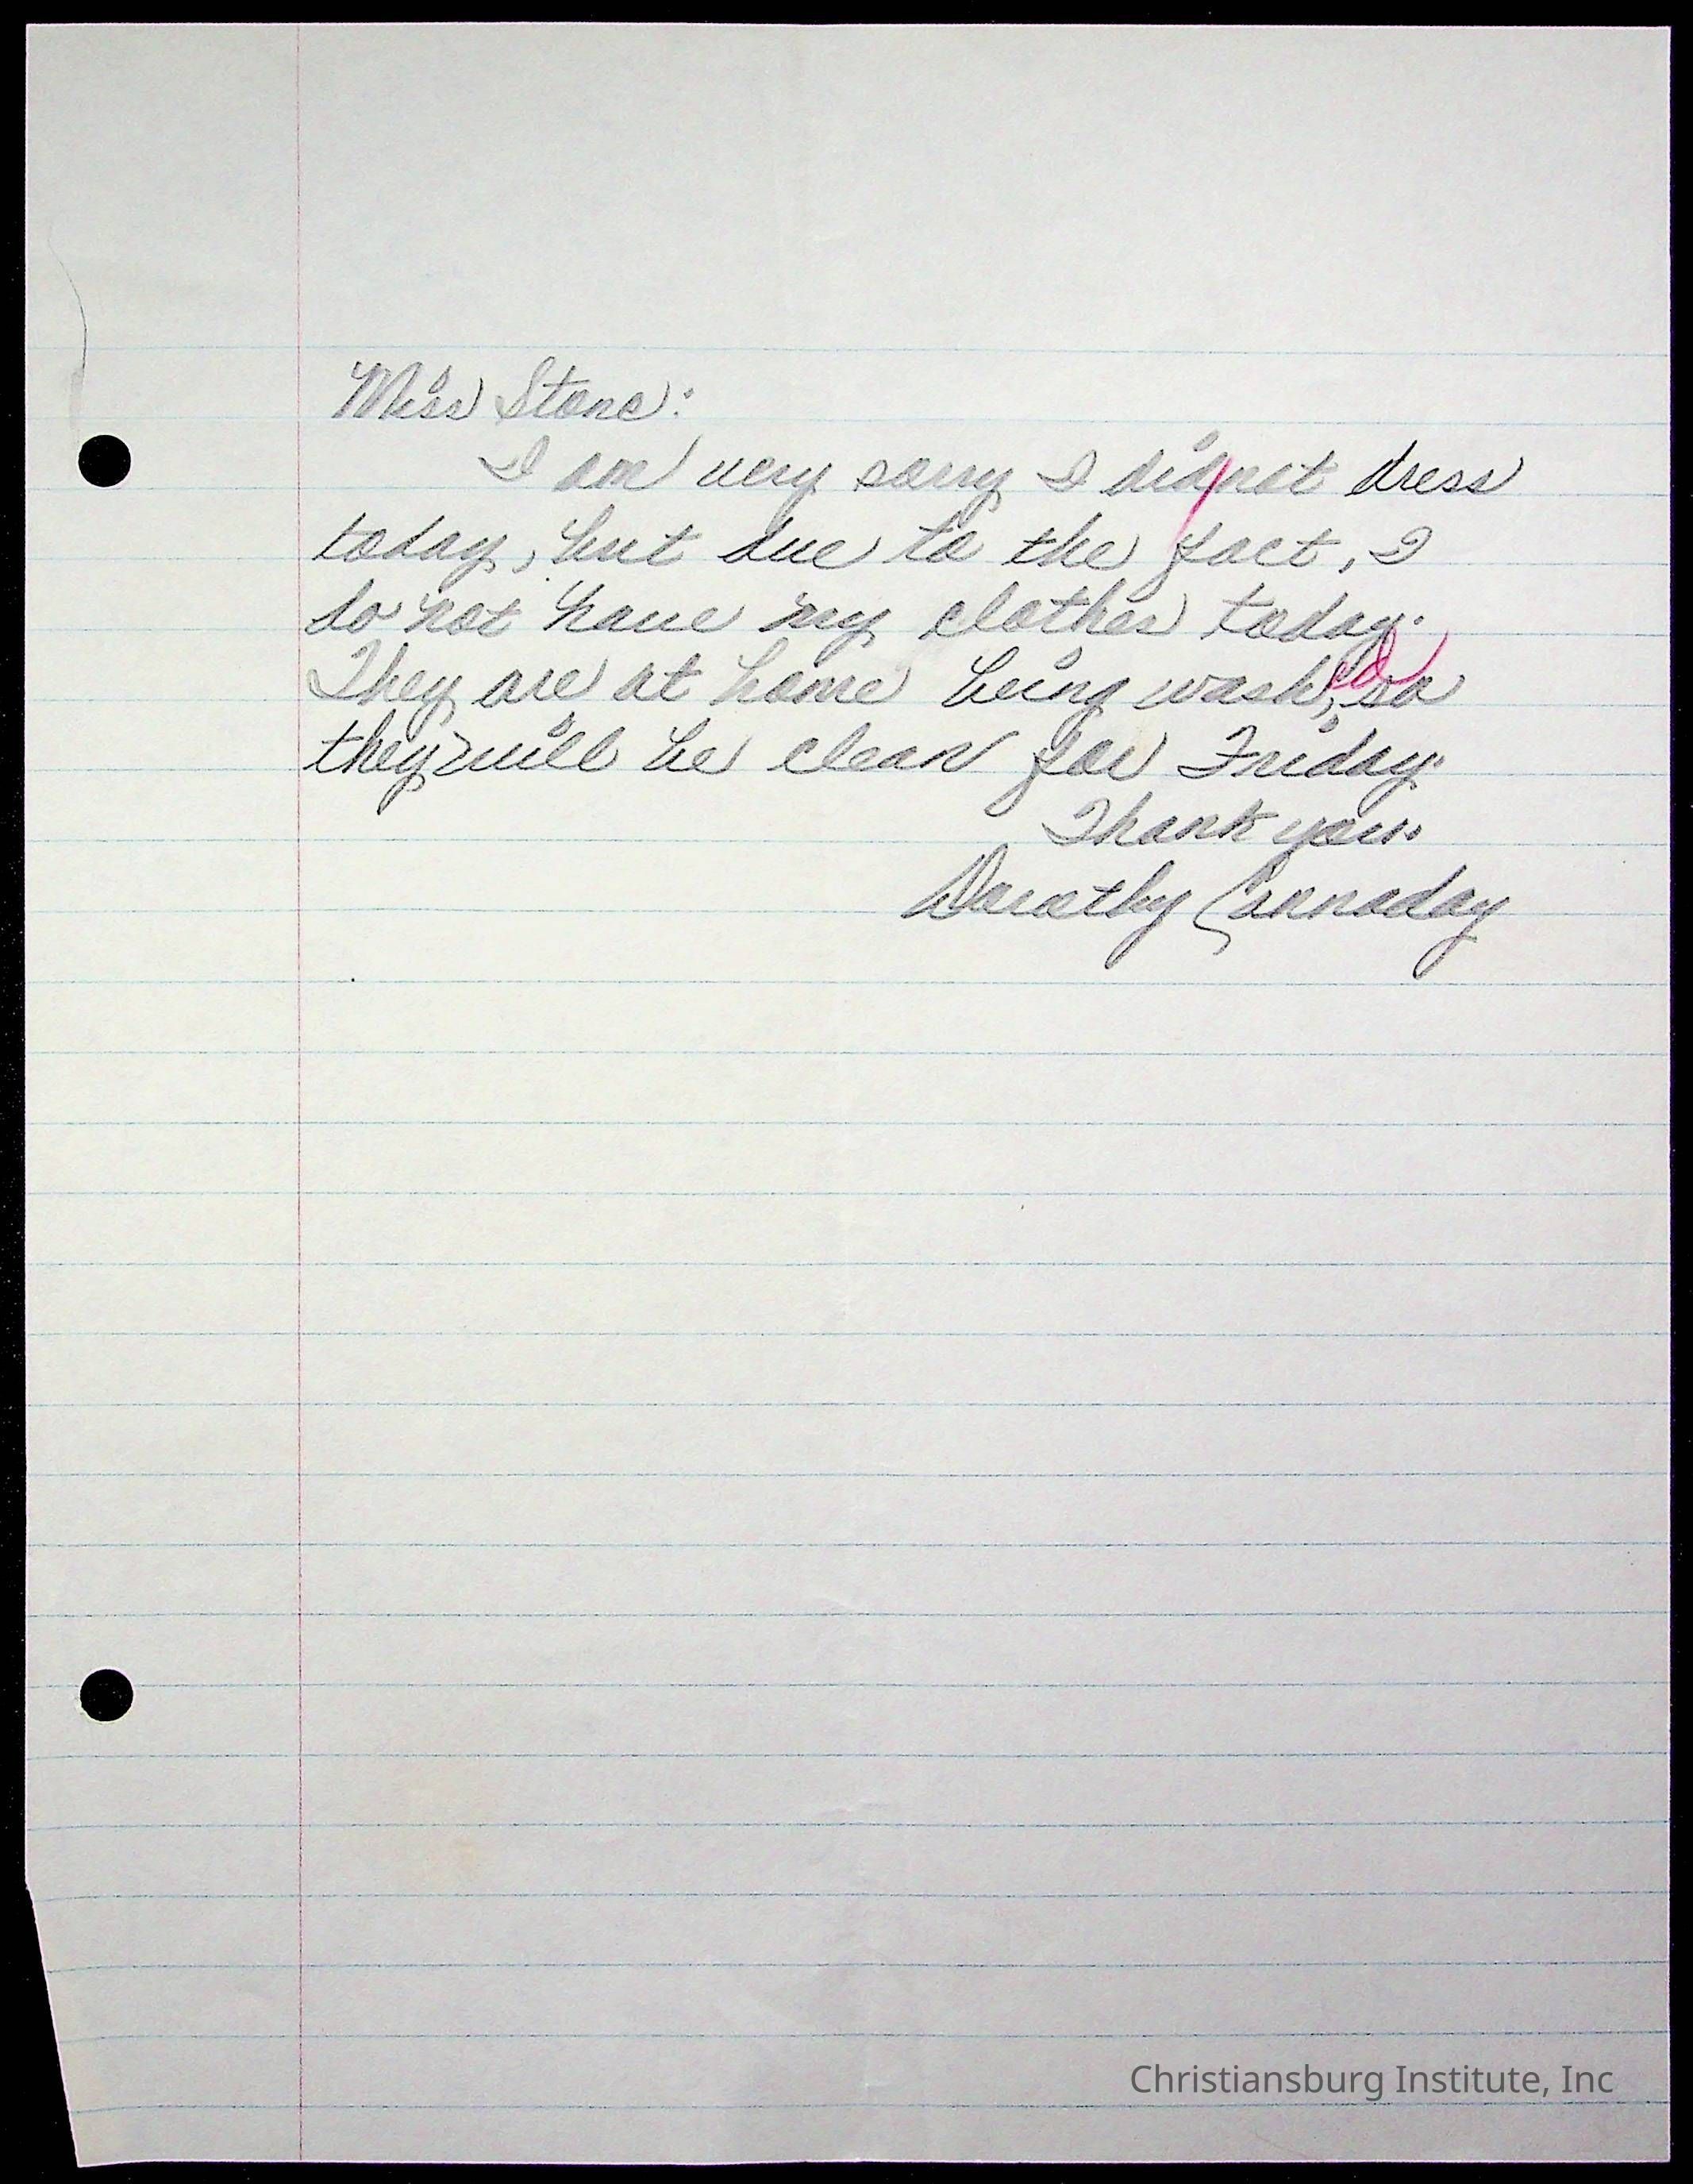 Miss Stone:
I am very sorry I didnot dress
today, but due to the fact, I
do not have my clothes today.
They are at home being washed, so
they will be clean for Friday.
Thank you.
Dorothy Cannaday
Christiansburg Institute, Inc